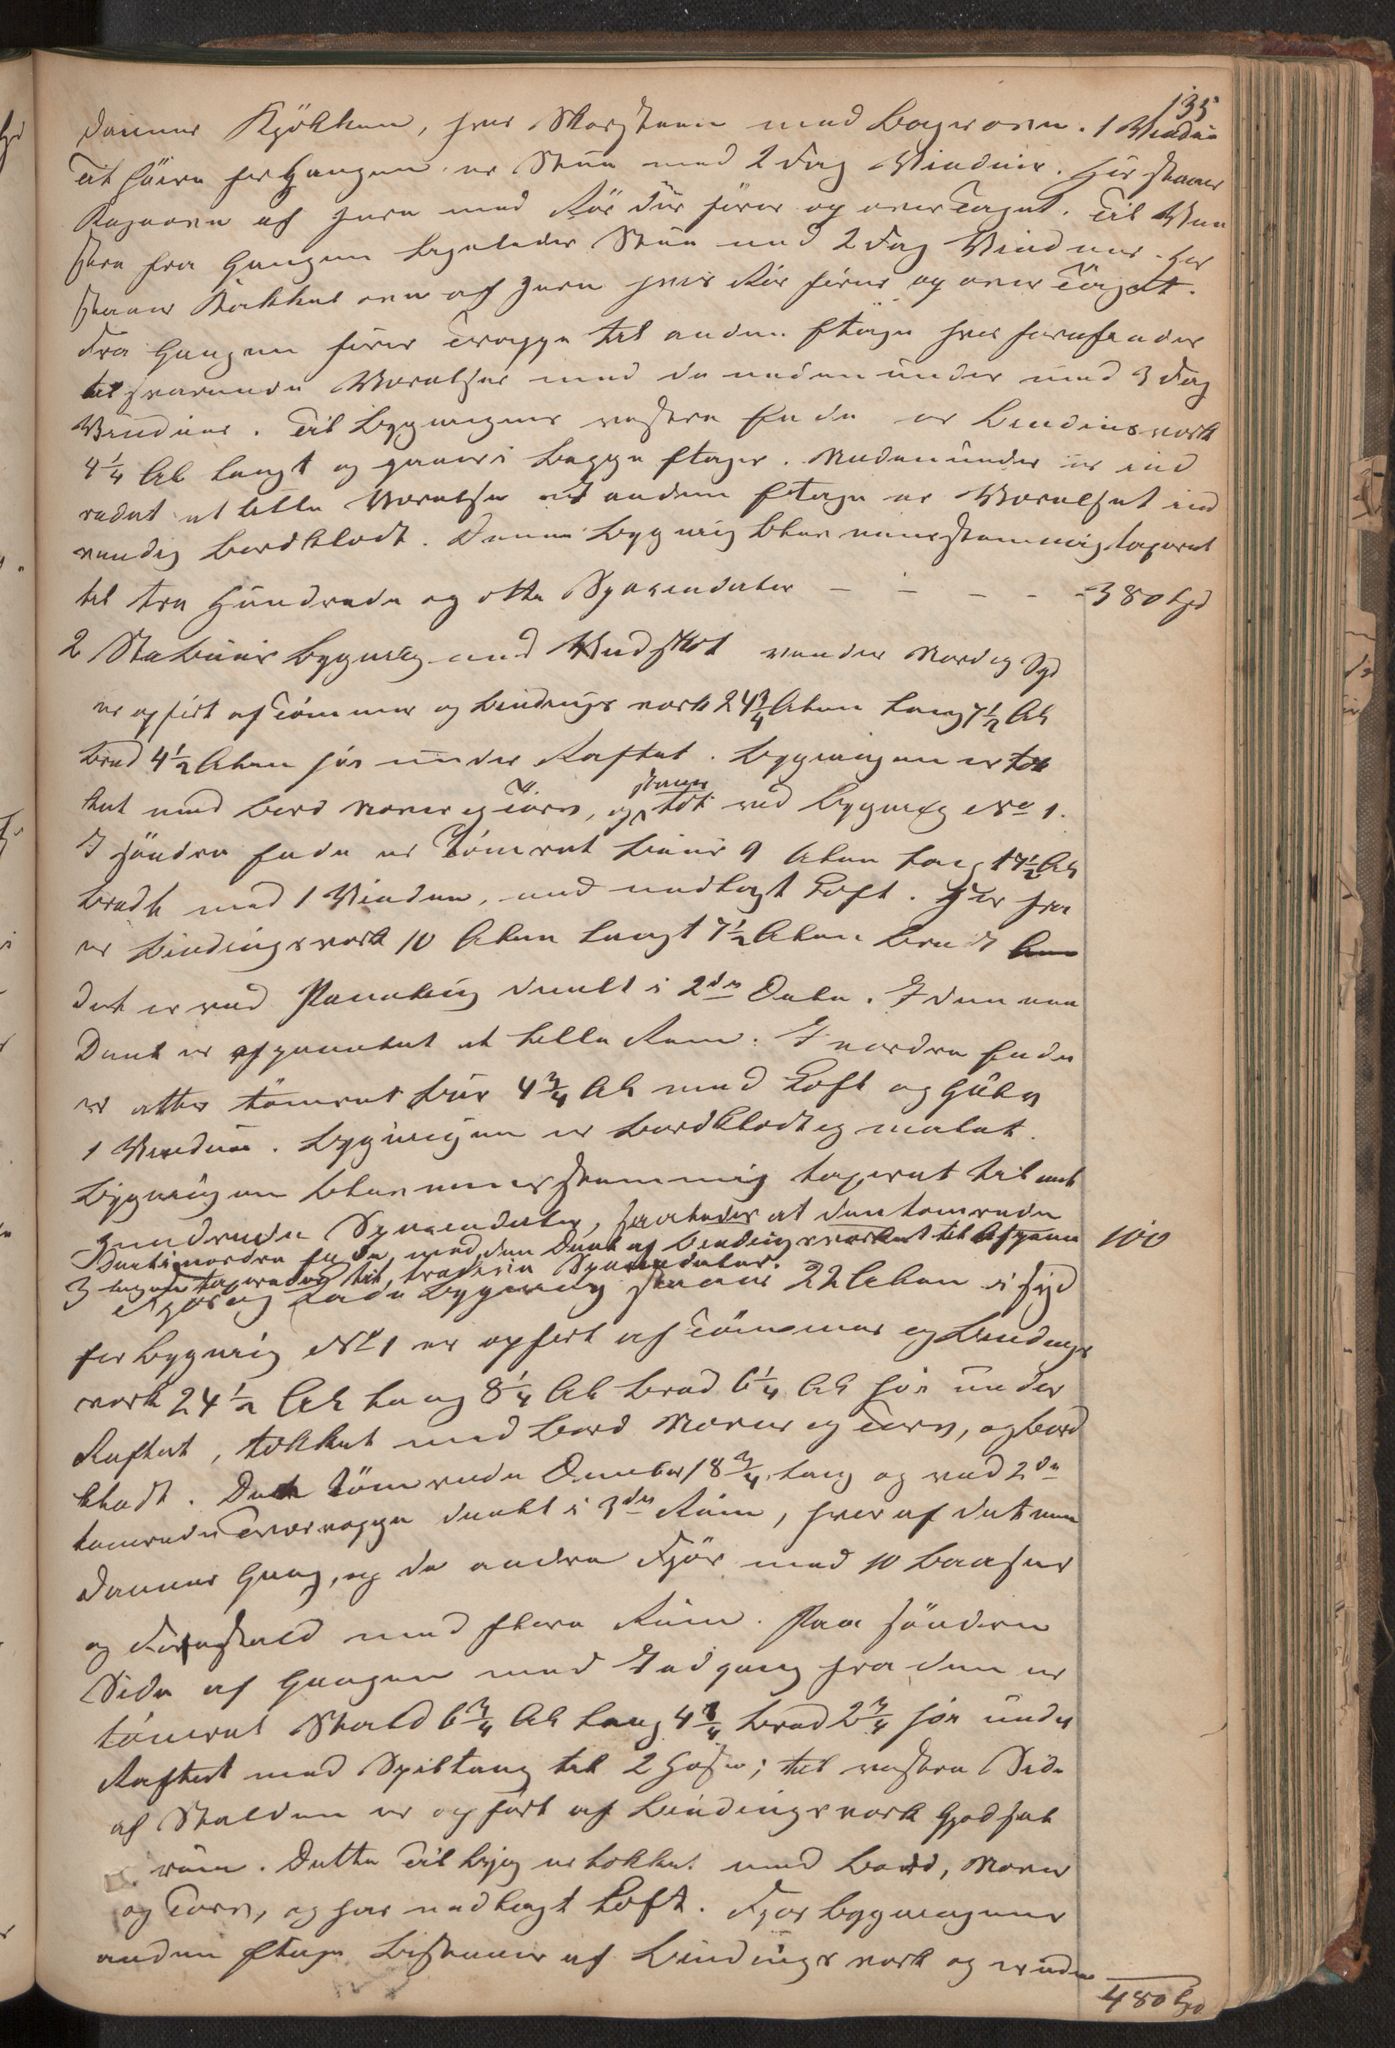 135
danner Kjökken, hvor Skorsteen med Bagerovn. 1 Vindue
Til höire for Gangen er Stue med 2 Fag Vinduer. Her staaer
Kogeovn af Jern med Rör der förer op over Taget. Til Ven
stre fra Gangen ligeledes Stue med 2 Fag Vinduer. Her
staaer Kakkelovn af Jern hvis Rör förer op over Taget.
Fra Gangen förer Trappe til anden Etage hvor forefindes
tilsvarende Værelser med de nedenunder med 3 Fag
Vinduer. Til Bygningens vestre Ende er Bindingsverk
4 1/4 Al langt og gaaer i begge Etager. Nedenunder er ind
redet et lille Værelse og anden Etage er Værelset ind
vendig bordklædt. Denne Bygning blev eenstemmig taxeret
til tre Hundrede og otte Speciedaler - - - - 380 Spd
2 Stabuurs Bygning med Vedskot vender Nord og Syd
er opfört af Tömmer og Bindingsverk 24 3/4 Alen lang 7 1/2 Al
bred 4 1/2 Alen höi under Raftet. Bygningen er tæk
ket med Bord Næver og Torv, og staaer tæt ved Bygning No 1.
I söndre Ende er Tömret Buur 9 Alen langt 7 1/2 Al
bredt med 1 Vindue, med nedlagt Loft. Her fra
er Bindingsverk 10 Alen langt 7 1/2 Alen bredt
det er ved Paneling deelt i 2de Dele. I den ene
Deel er afpanelet et lille Rum. I nordre Ende
er atter tömret Buur 4 3/4 Al med Loft og Gulv
1 Vindue. Bygningen er bordklædt og malet.
Bygningen blev eenstemmig taxeret til eet
Hundrede Speciedaler, saaledes at den tömrede 100
Deel i nordre Ende med den Deel af Bindingsverket til
taxeredes til Speciedaler.
3 Fjös og Lade Bygning staaer 22 Alen i Syd
for Bygning No 1 er opfört af Tömmer og Bindings
verk 24 1/2 Al lang 8 1/4 Al bred 6 1/4 Al höi under
Raftet, tækket med Bord Næver og Torv, og bord
klædt. Den tömrede 18 3/4 lang og ved 2de
tömrede Tvervægge deelt i 3de Rum, hvor af det ene
danner Gang, og de andre Fjös med 10 Baaser
og Faarestald med flere Rum. Paa söndre
Side af Gangen med Indgang fra den er
tömret Stald 6 3/4 Al lang 4 3/4 bred 2 3/4 höi under
Raftet med Spiltaug til 2 Heste; til vestre Side
af Stalden er opfört af Bindingsverk Gjödsel
rum. Dette Tilbyg er tækket med Bord, Næver
og Torv, og har nedlagt Loft. Fjös Bygningens
anden Etage bestaaer af Bindingsverk og er uden
480 Spd